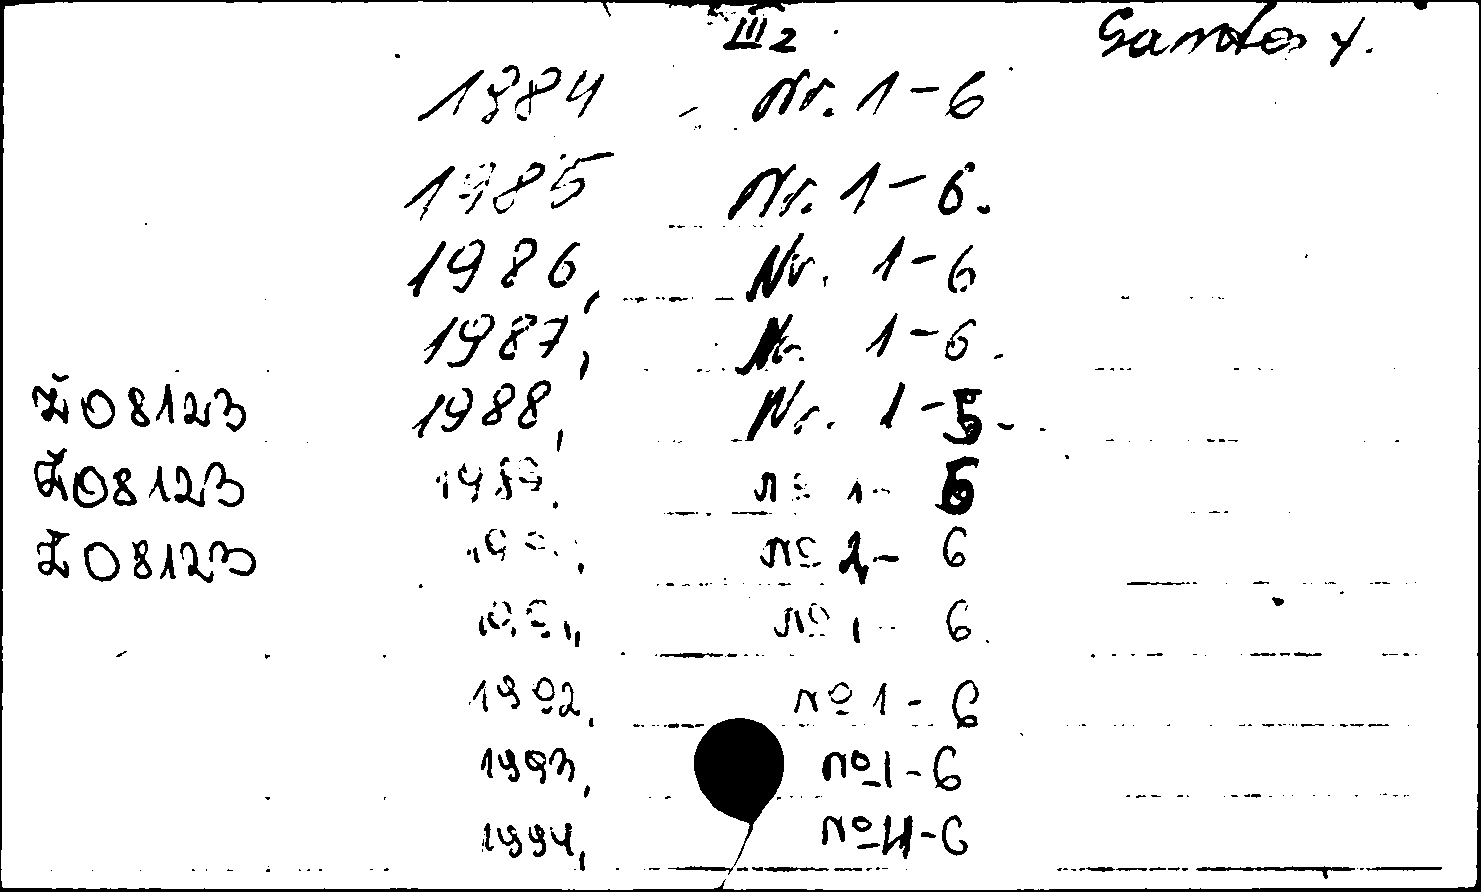 III 2
1984 Nr. 1-6
1985 Nr. 1-6.
1986, Nr. 1-6
1987, Nr. 1-6.
Ž08123 1988, Nr. 1-5-
Ž08123 1989, № 1-6
Ž08123 № 1-6
№ 1-6
1992, № 1-6
1993, № 1-6
1994, № -6